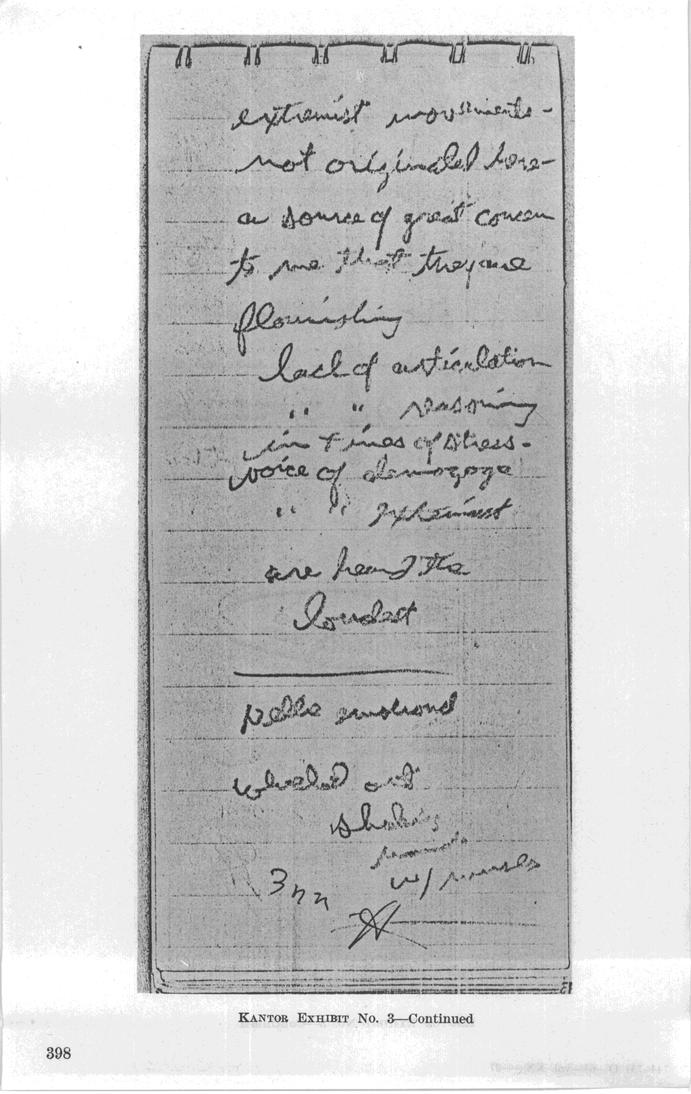 extremist movements-
not originated here-
a source of great concern
to me that they are
flourishing
lack of articulation
" " reasoning
in times of stress-
voice of demogoge
" " extremist
are heard the
loudest
emotional
wheeled out
shaking
w/ nurses
3
KANTOR EXHIBIT No. 3—Continued
398